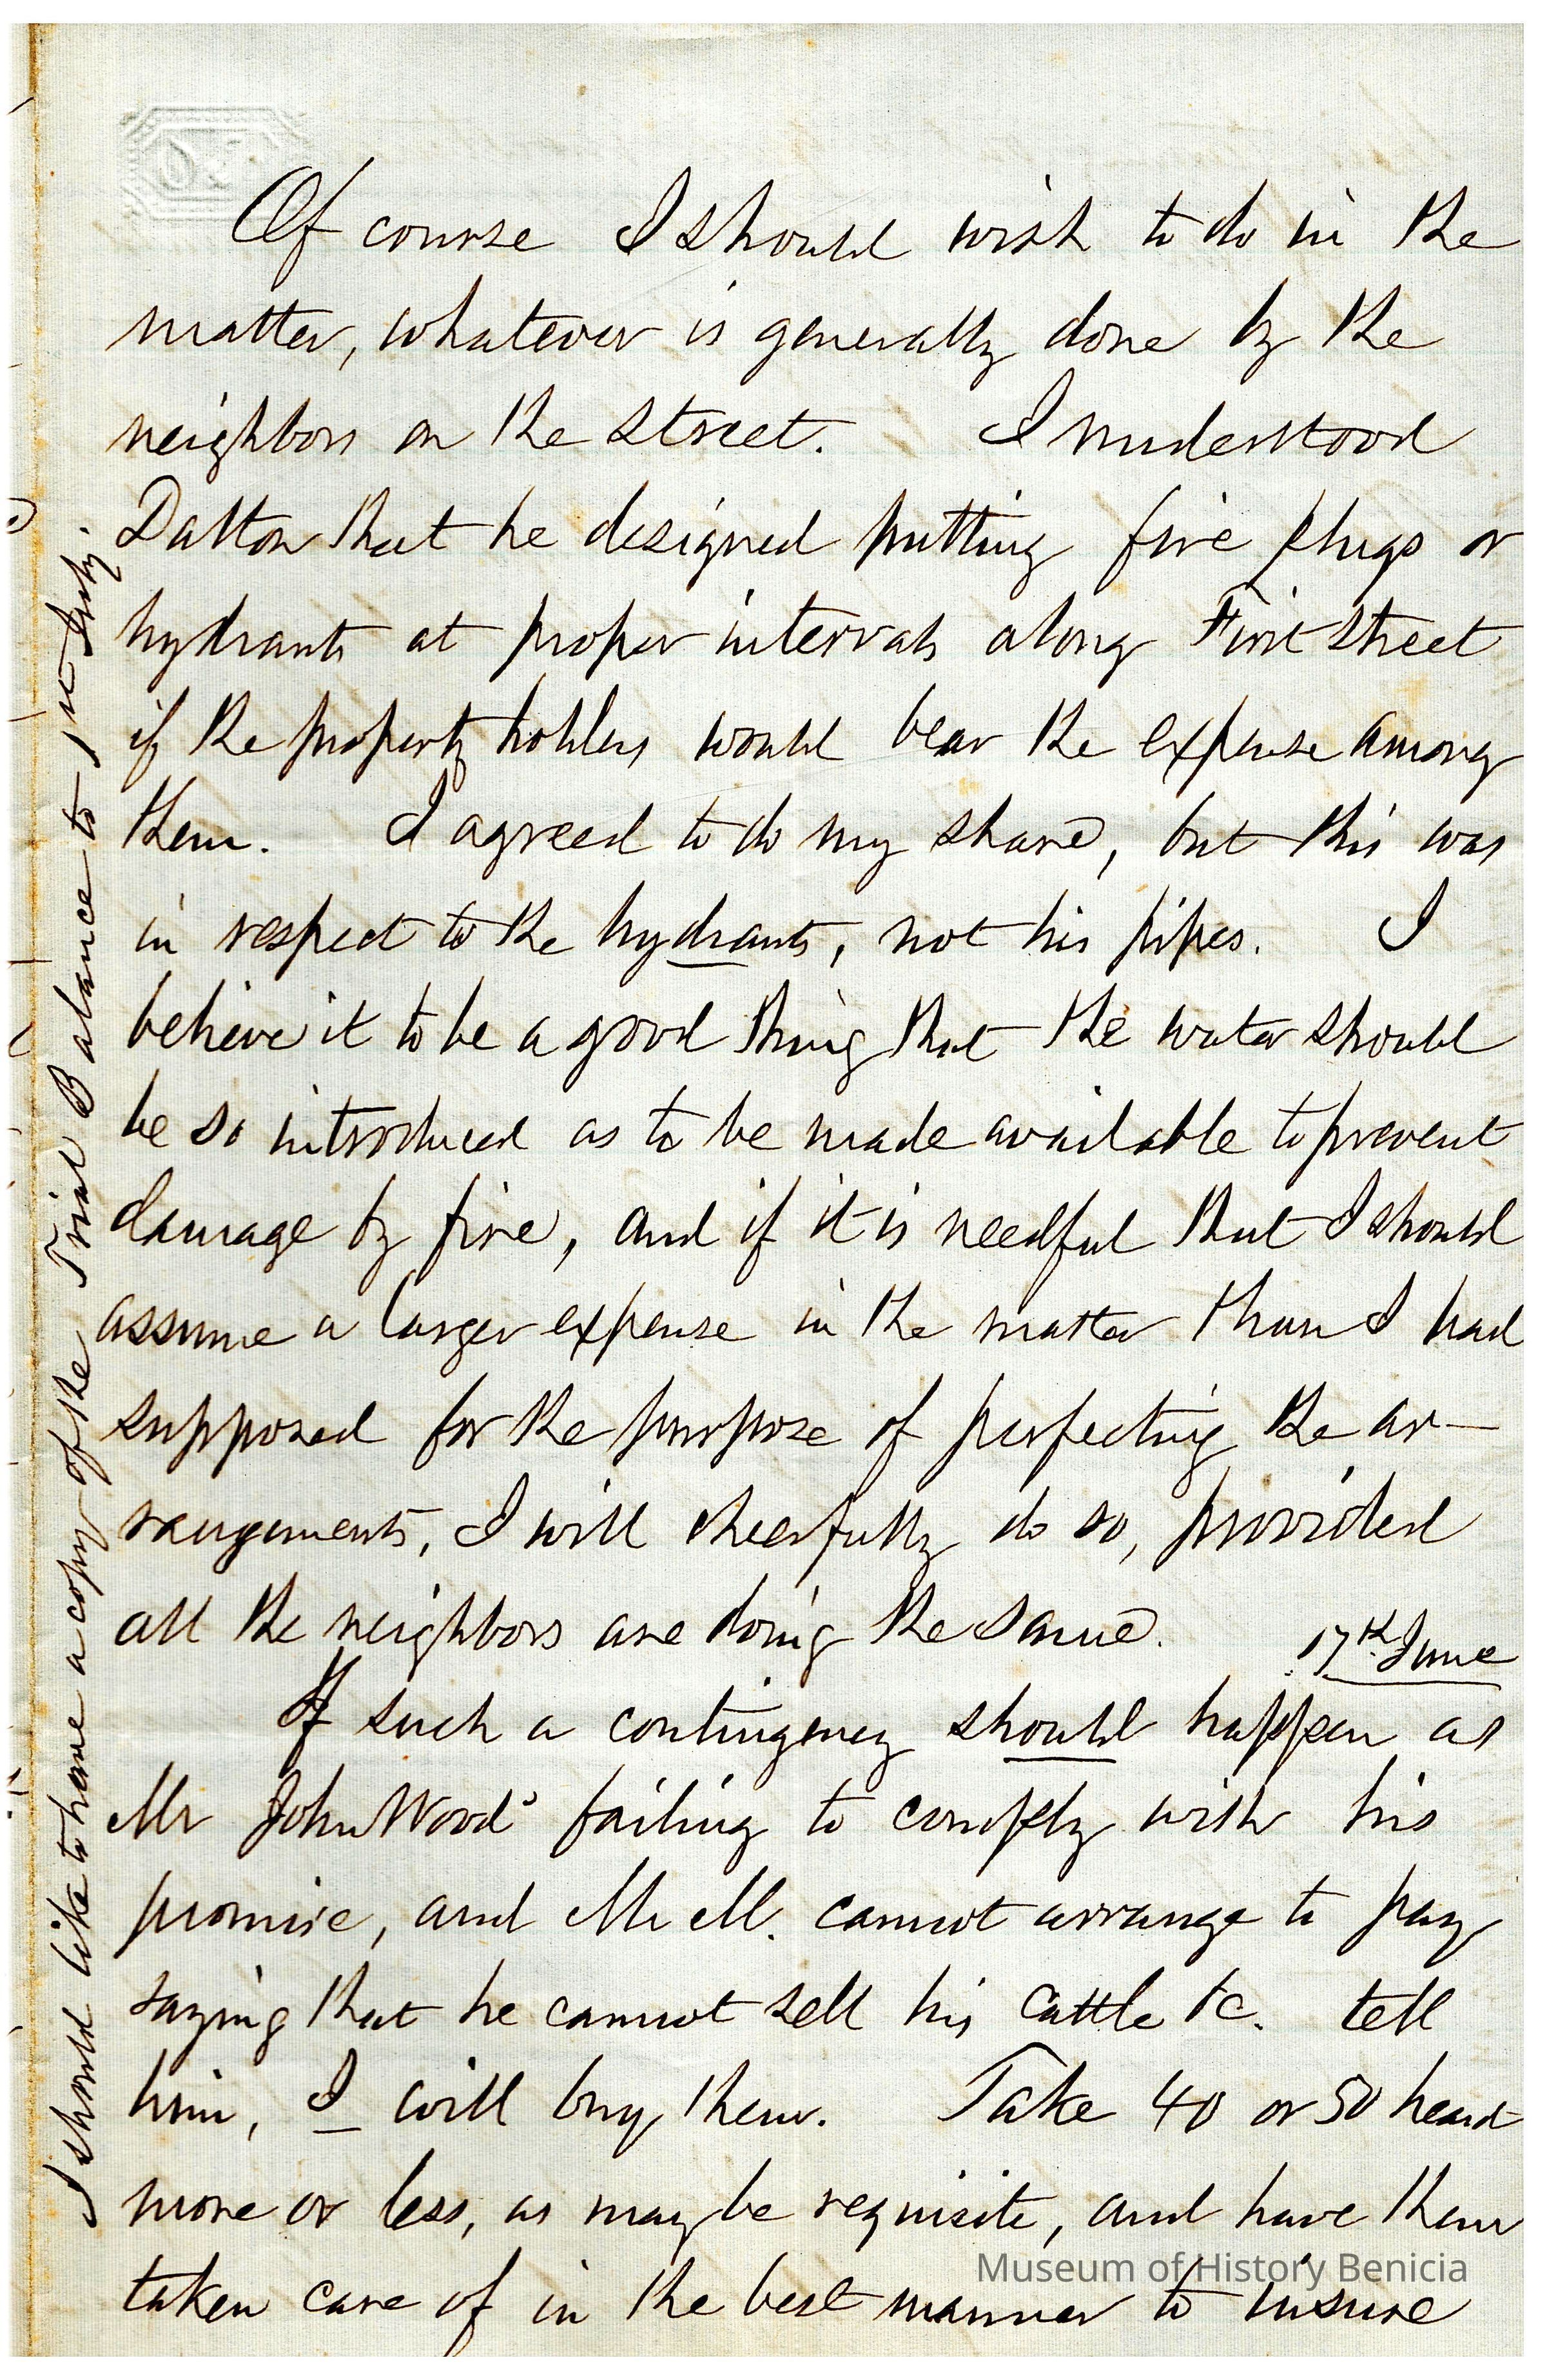 Of course I should wish to do in the
matter, whatever is generally done by the
neighbors on the street. I understood
Dalton that he designed putting fire plugs or
hydrants at proper intervals along First Street
if the property holders would bear the expense among
them. I agreed to do my share, but this was
in respect to the hydrants, not his pipes. I
believe it to be a good thing that the water should
be so introduced as to be made available to prevent
damage by fire, and if it is needful that I should
assume a larger expense in the matter than I had
supposed for the purpose of perfecting the ar-
rangements, I will cheerfully do so, provided
all the neighbors are doing the same.
17th June
If such a contingency should happen as
Mr John Woods failing to comply with his
promise, and Mr M. cannot arrange to pay
saying that he cannot sell his cattle &c. tell
him, I will buy them. Take 40 or 50 head
more or less, as may be requisite, and have them
taken care of in the best manner to insure
I should like to have a copy of the Trial Balance to 1st July.
Museum of History Benicia